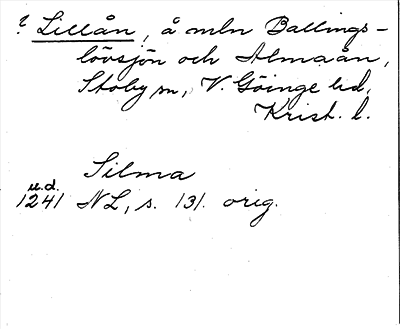 ? Lillån, å mln Ballings-
lövsjön och Almaån,
Stoby sn, V. Göinge hd,
Krist. l.
Silma
u.d.
1241 NL, s. 131. orig.